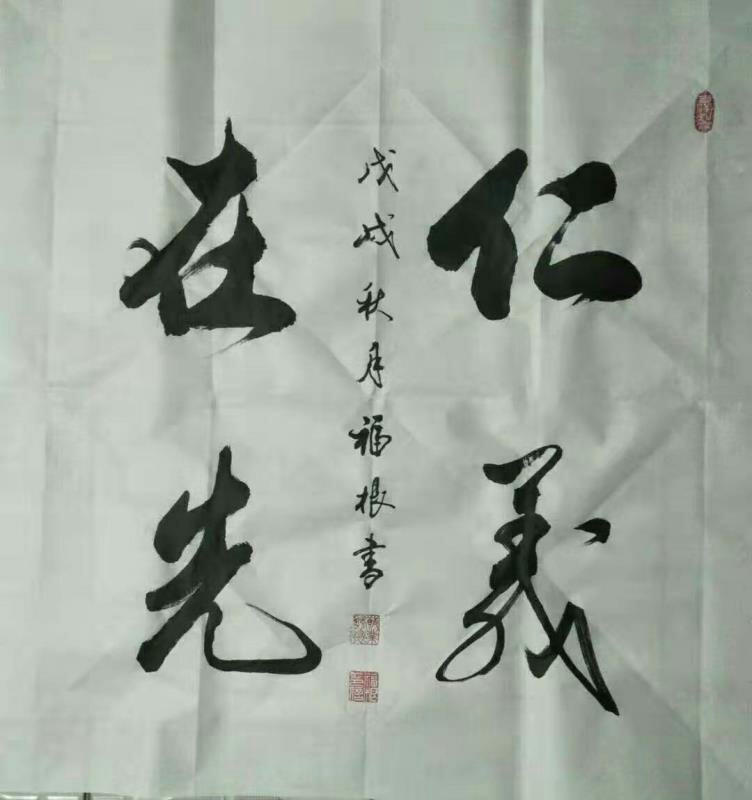 仁義
在先
戊戌秋月福根书